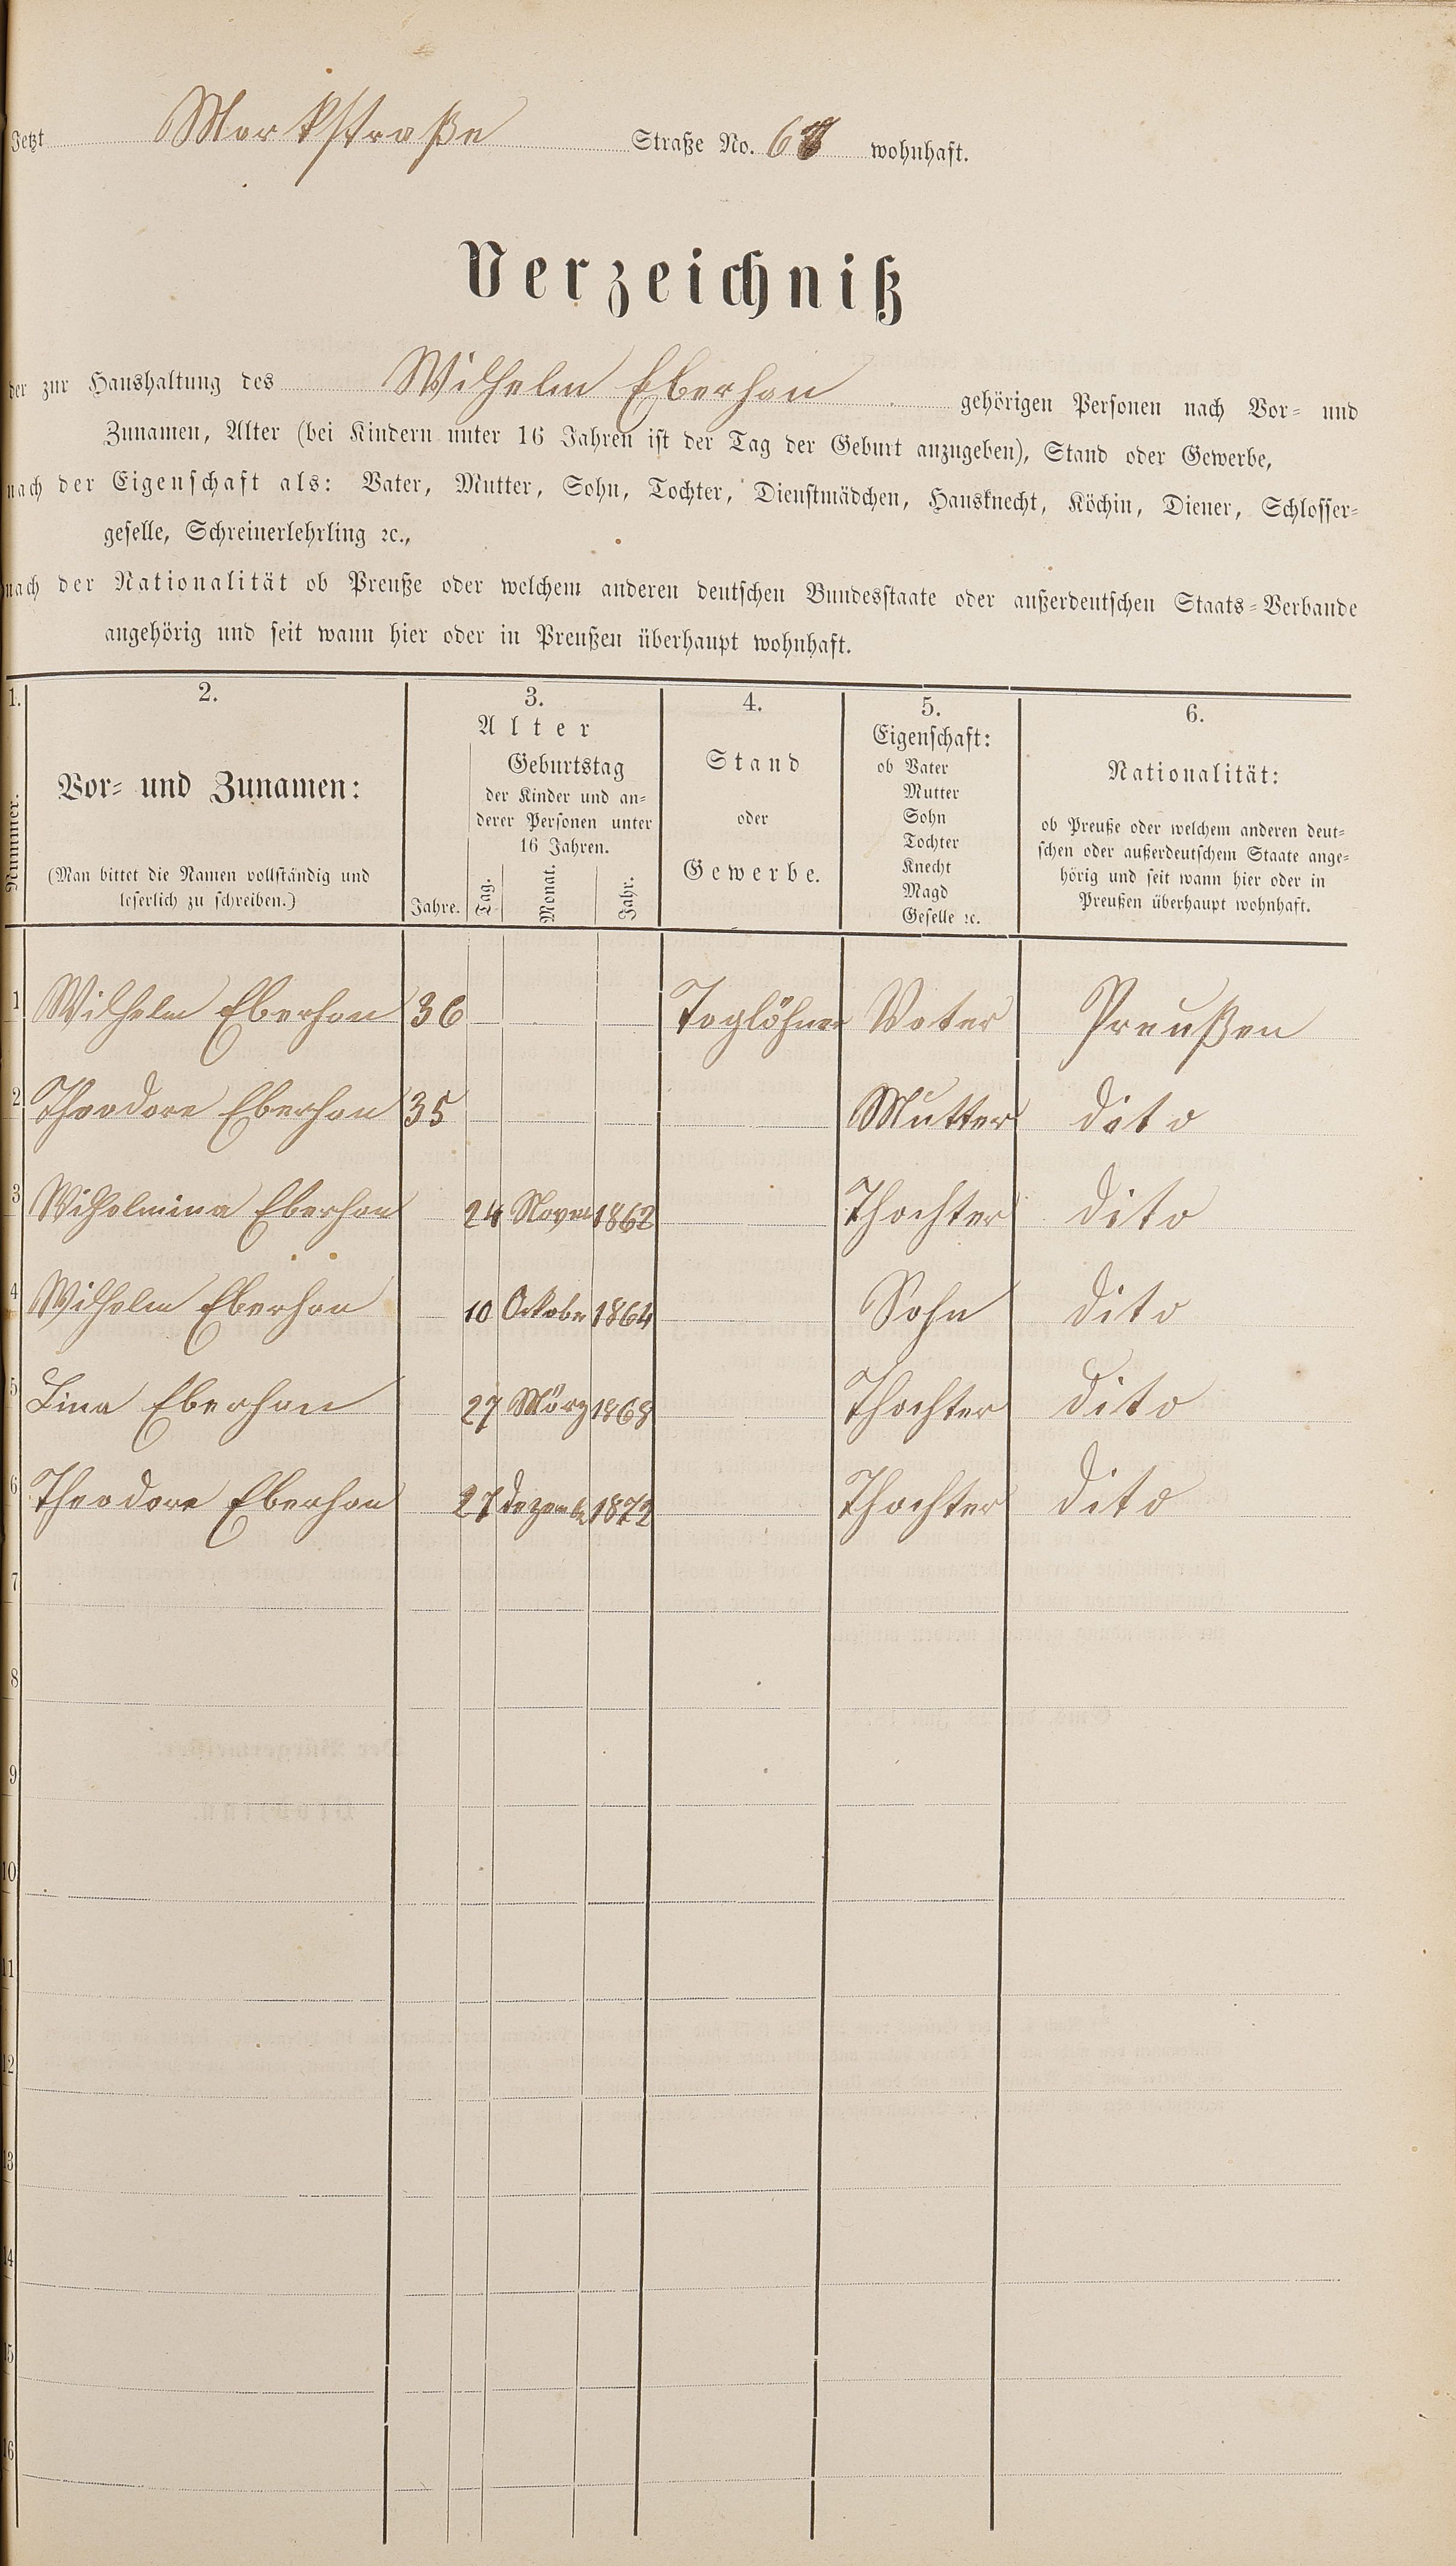 Jetzt Markstraße Straße No. 68 wohnhaft.
Verzeichniß
der zur Haushaltung des Wilhelm Eberhan gehörigen Personen nach Vor- und
Zunamen, Alter (bei Kindern unter 16 Jahren ist der Tag der Geburt anzugeben), Stand oder Gewerbe,
nach der Eigenschaft als: Vater, Mutter, Sohn, Tochter, Dienstmädchen, Hausknecht, Köchin, Diener, Schlosser-
geselle, Schreinerlehrling ꝛc.,
nach der Nationalität ob Preuße oder welchem anderen deutschen Bundesstaate oder außerdeutschen Staats-Verbande
angehörig und seit wann hier oder in Preußen überhaupt wohnhaft.
1. 2. 3. 4. 5. 6.
Nummer.
Vor- und Zunamen:
(Man bittet die Namen vollständig und
leserlich zu schreiben.)
Alter
Jahre.
Geburtstag
der Kinder und an-
derer Personen unter
16 Jahren.
Tag. Monat. Jahr.
Stand
oder
Gewerbe.
Eigenschaft:
ob Vater
Mutter
Sohn
Tochter
Knecht
Magd
Geselle ꝛc.
Nationalität:
ob Preuße oder welchem anderen deut-
schen oder außerdeutschem Staate ange-
hörig und seit wann hier oder in
Preußen überhaupt wohnhaft.
1 Wilhelm Eberhan 36 Taglöhner Vater Preußen
2 Theodore Eberhan 35 Mutter dito
3 Wilhelmina Eberhan 24 Novem 1862 Thochter dito
4 Wilhelm Eberhan 10 Octobr 1864 Sohn dito
5 Lina Eberhan 27 März 1868 Thochter dito
6 Theodore Eberhan 27 dezemb 1872 Thochter dito
7
8
9
10
11
12
13
14
15
16